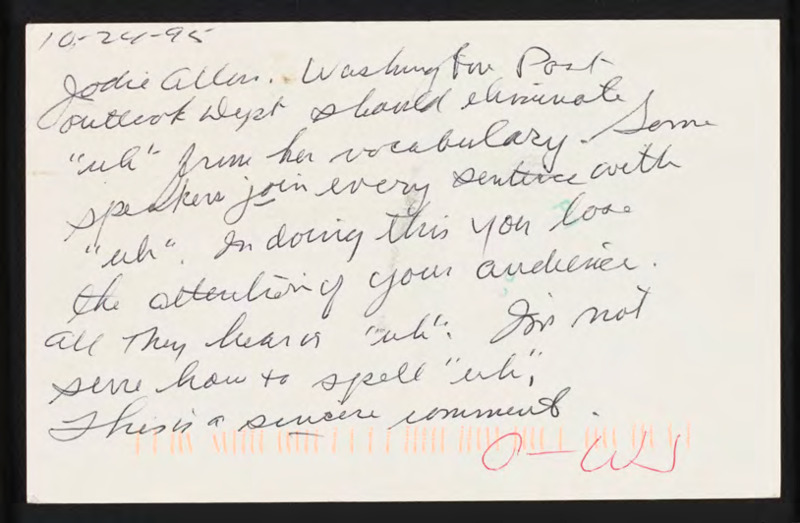 10-24-95
Jodie Allen. Washington Post
Outlook Dept should eliminate
"uh" from her vocabulary. Some
speakers join every sentence with
"uh". In doing this you lose
the attention of your audience.
All they hear is "uh". I'm not
sure how to spell "uh",
This is a sincere comment.